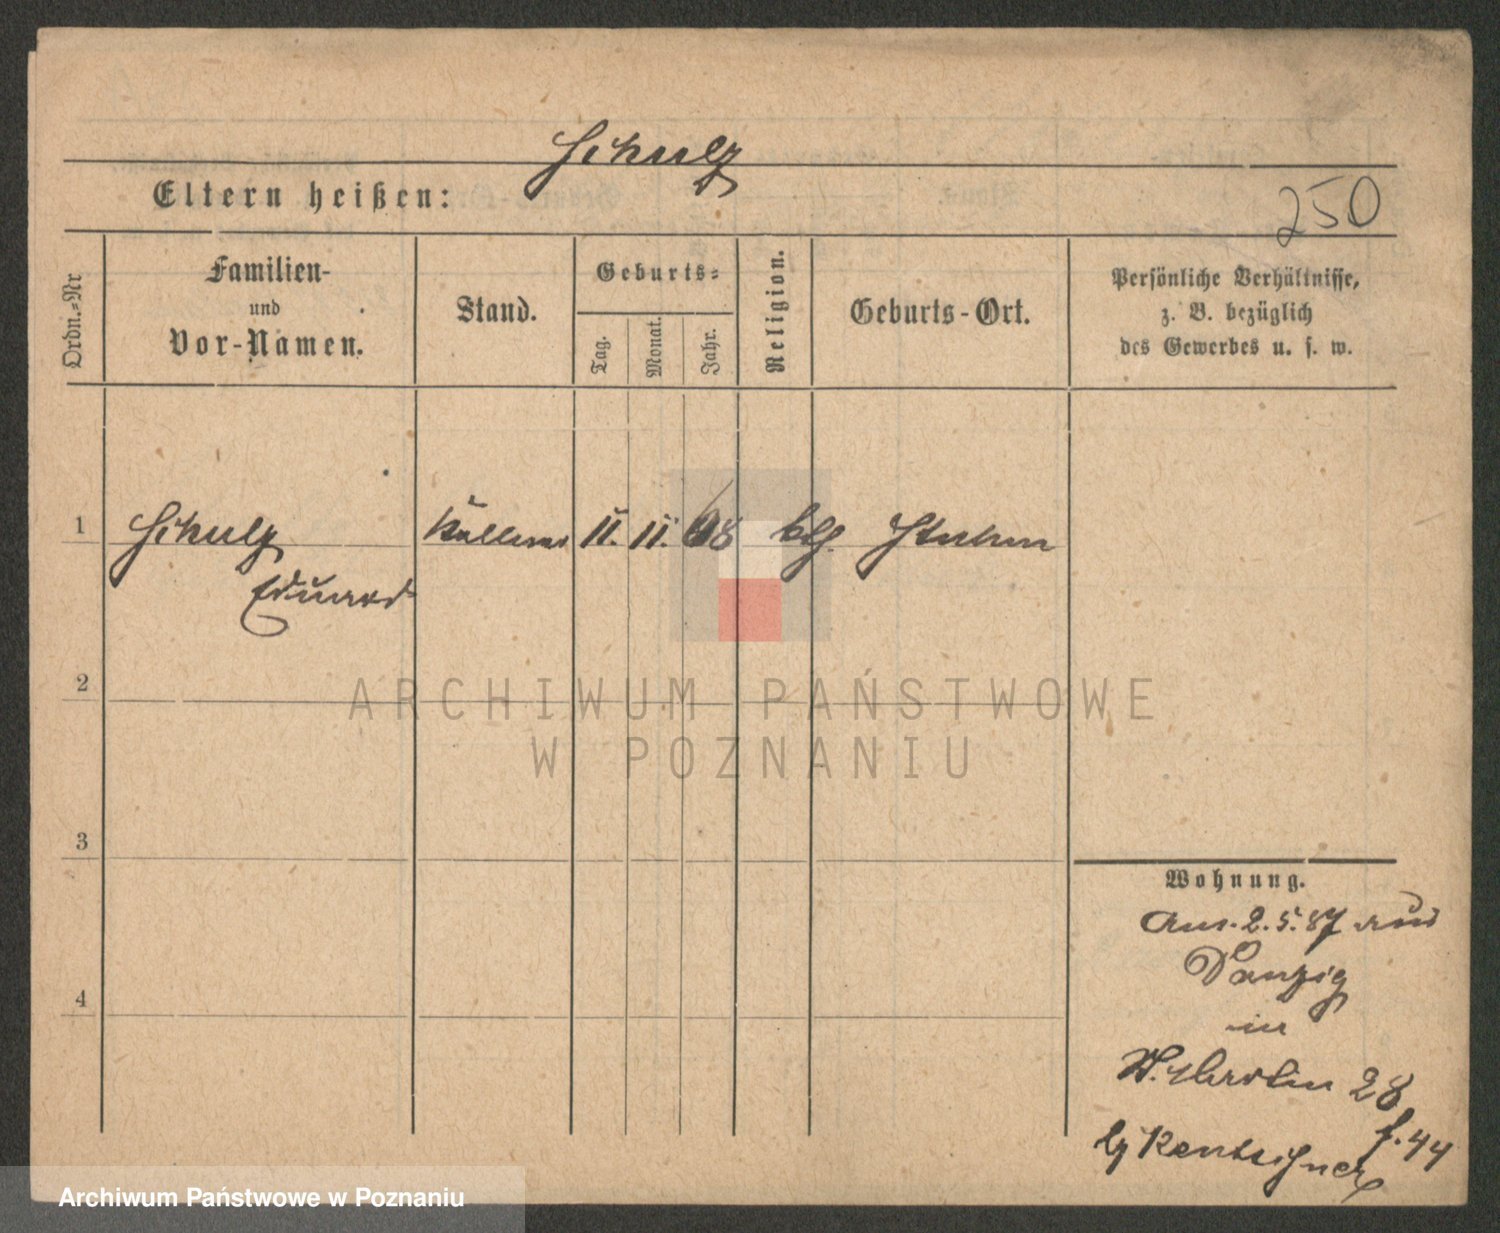 Schulz
Eltern heißen:
250
Ordn.-Nr
Familien-
und
Vor-Namen.
Stand.
Geburts-
Tag.
Monat.
Jahr.
Religion.
Geburts-Ort.
Persönliche Verhältnisse,
z. B. bezüglich
des Gewerbes u. s. w.
1
Schulz
Eduard
Kellner
11. 11. 68
kth.
Stuhm
2
ARCHIWUM PAŃSTWOWE
W POZNANIU
3
Wohnung.
2.5.87 aus
Danzig
in
St. Martin 28
f. 44
bj Rentschner
4
Archiwum Państwowe w Poznaniu